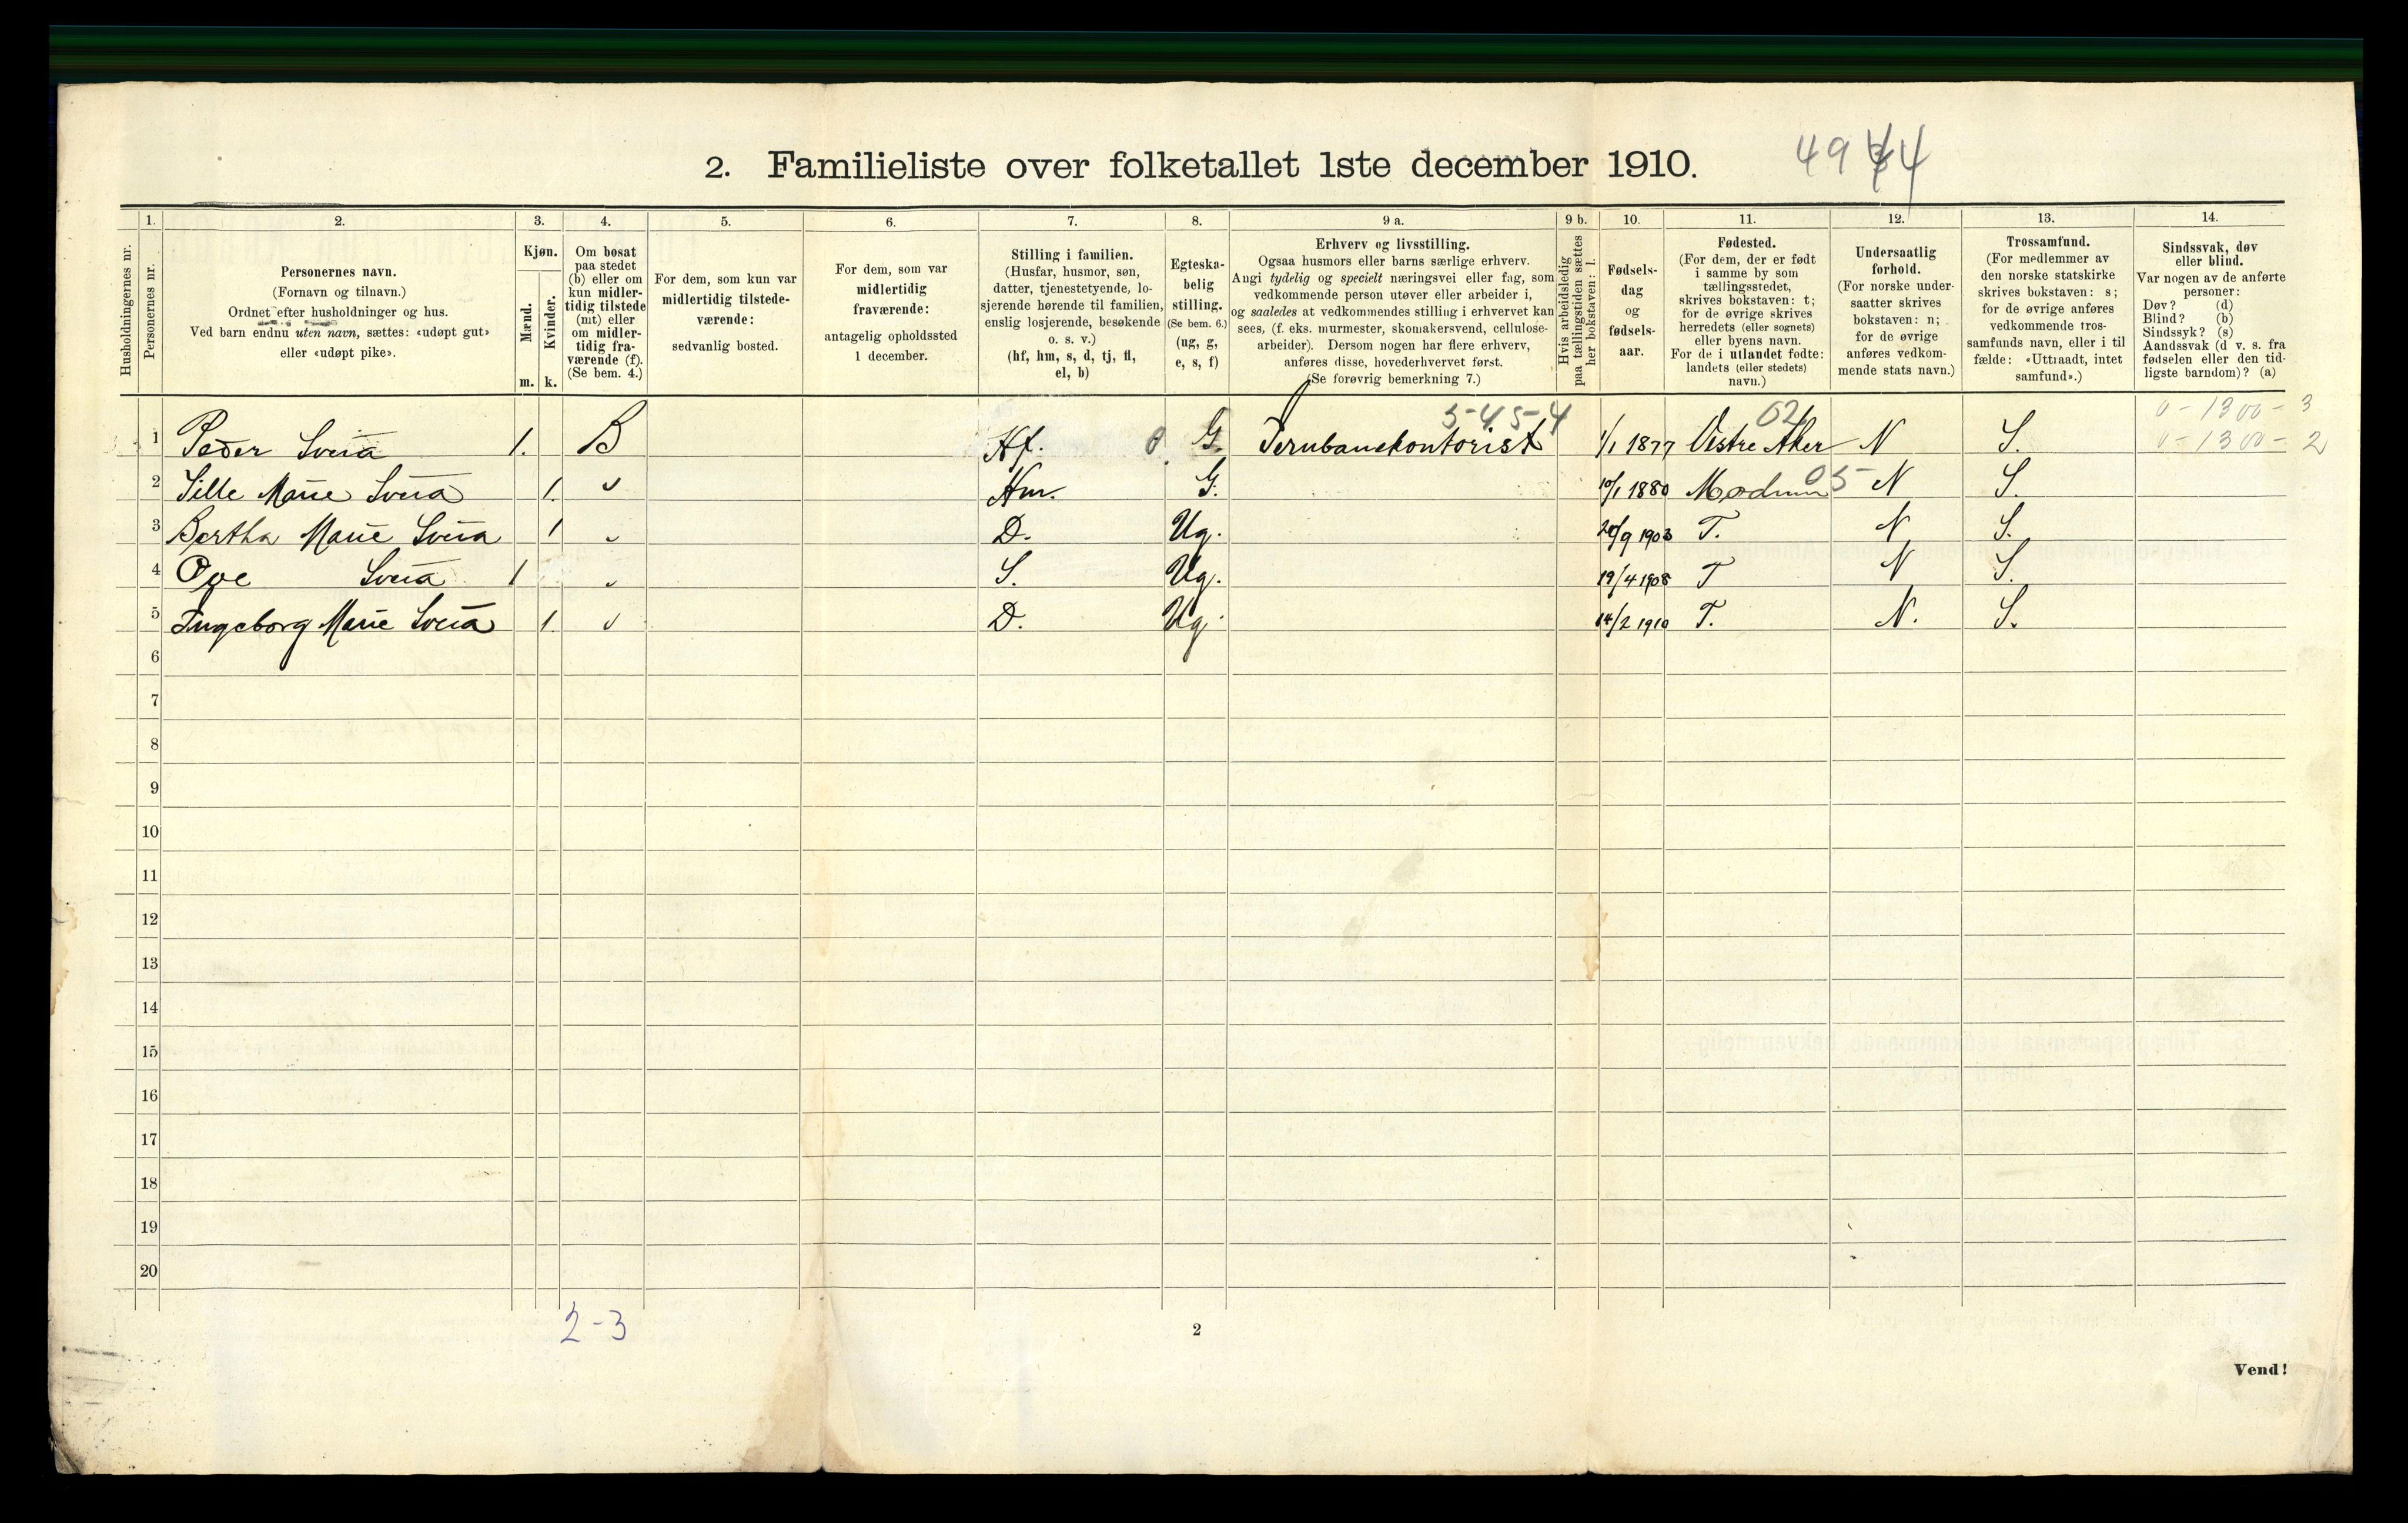 2. Familieliste over folketallet 1ste december 1910.
4944
Husholdningernes nr.
1.
Personernes nr.
2.
Personernes navn.
(Fornavn og tilnavn.)
Ordnet efter husholdninger og hus.
Ved barn endnu uten navn, sættes: «udøpt gut»
eller «udøpt pike».
3.
Kjøn.
Mænd.
Kvinder.
m. k.
4.
Om bosat
paa stedet
(b) eller om
kun midler-
tidig tilstede
(mt) eller
om midler-
tidig fra-
værende (f).
(Se bem. 4.)
5.
For dem, som kun var
midlertidig tilstede-
værende:
sedvanlig bosted.
6.
For dem, som var
midlertidig
fraværende:
antagelig opholdssted
1 december.
7.
Stilling i familien.
(Husfar, husmor, søn,
datter, tjenestetyende, lo-
sjerende hørende til familien,
enslig losjerende, besøkende
o. s. v.)
(hf, hm, s, d, tj, fl,
el, b)
8.
Egteska-
belig
stilling.
(Se bem. 6.)
(ug, g,
e, s, f)
9 a.
Erhverv og livsstilling.
Ogsaa husmors eller barns særlige erhverv.
Angi tydelig og specielt næringsvei eller fag, som
vedkommende person utøver eller arbeider i,
og saaledes at vedkommendes stilling i erhvervet kan
sees, (f. eks. murmester, skomakersvend, cellulose-
arbeider). Dersom nogen har flere erhverv,
anføres disse, hovederhvervet først.
(Se forøvrig bemerkning 7.)
9 b.
Hvis arbeidsledig
paa tællingstiden sættes
her bokstaven: l.
10.
Fødsels-
dag
og
fødsels-
aar.
11.
Fødested.
(For dem, der er født
i samme by som
tællingsstedet,
skrives bokstaven: t;
for de øvrige skrives
herredets (eller sognets)
eller byens navn.
For de i utlandet fødte:
landets (eller stedets)
navn.)
12.
Undersaatlig
forhold.
(For norske under-
saatter skrives
bokstaven: n;
for de øvrige
anføres vedkom-
mende stats navn.)
13.
Trossamfund.
(For medlemmer av
den norske statskirke
skrives bokstaven: s;
for de øvrige anføres
vedkommende tros-
samfunds navn, eller i til
fælde: «Uttraadt, intet
samfund».)
14.
Sindssvak, døv
eller blind.
Var nogen av de anførte
personer:
Døv? (d)
Blind? (b)
Sindssyk? (s)
Aandssvak (d v. s. fra
fødselen eller den tid-
ligste barndom)? (a)
5-45-4 02 0-1300-3
1 Peder Sveia 1. B Hf. 0 G. Jernbanekontorist 1/1 1877 Vestre Aker N S. 0-1300-2
2 Sille Marie Sveia 1. " Hm. G. 10/1 1880 Modum 05 N S.
3 Bertha Marie Sveia 1 " D. Ug. 20/9 1903 T. N S.
4 Ove Sveia 1 " S. Ug. 19/4 1908 T N S.
5 Ingeborg Marie Sveia 1. " D. Ug. 14/2 1910 T. N. S.
6
7
8
9
10
11
12
13
14
15
16
17
18
19
20
2-3
2
Vend!